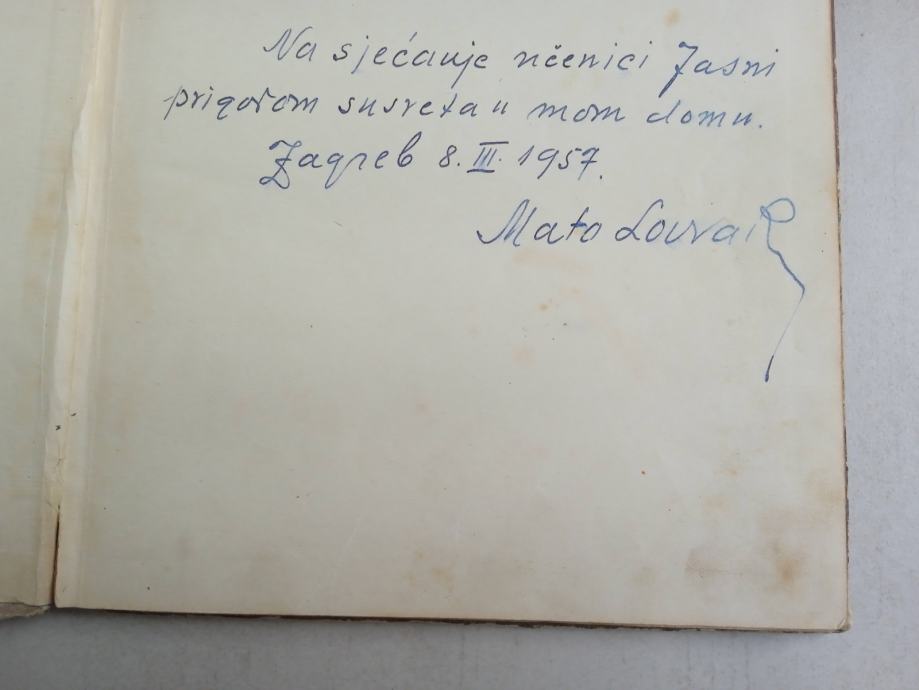 Na sjećanje učenici Jasni
prigodom susreta u mom domu.
Zagreb 8. III. 1957.
Mato Lovrak